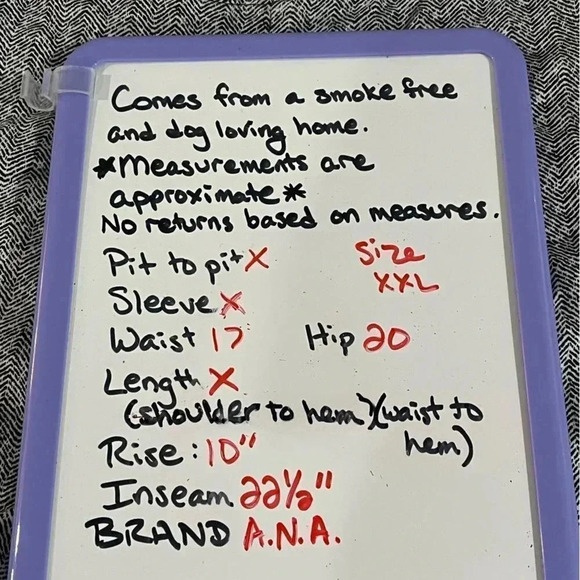 Comes from a smoke free
and dog loving home.
*Measurements are
approximate*
No returns based on measures.
Pit to pit X
Size
XXL
Sleeve X
Waist 17 Hip 20
Length X
(shoulder to hem)(waist to
hem)
Rise: 10"
Inseam 22½"
BRAND A.N.A.